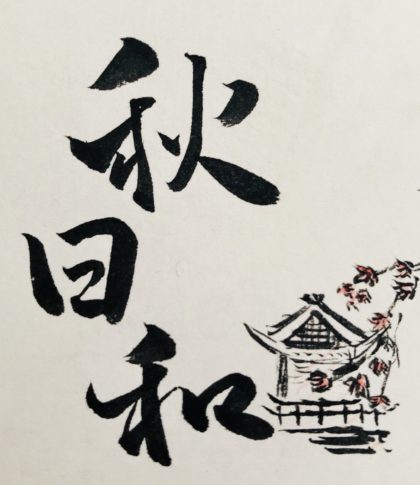 秋日和